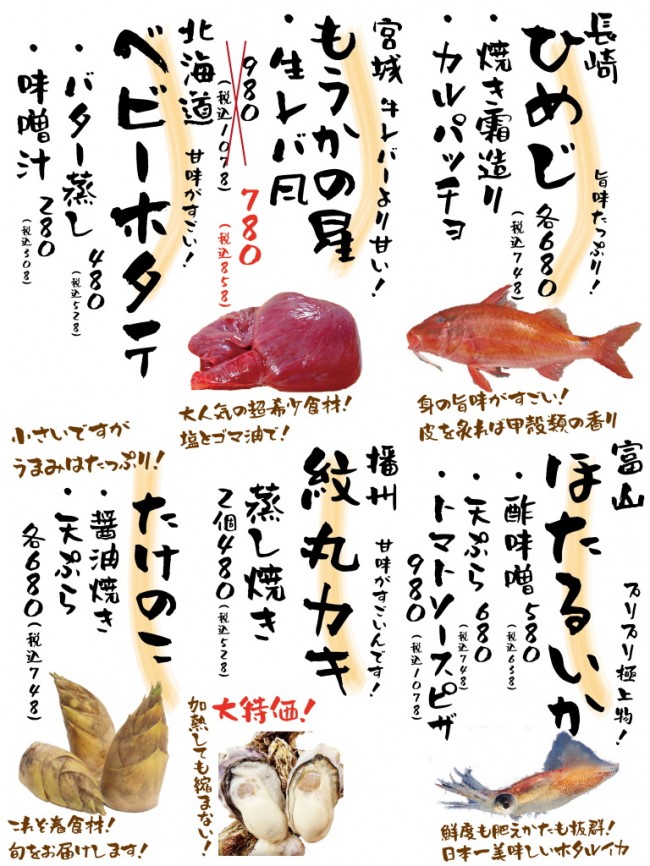 長崎
ひめじ
旨味たっぷり！
・焼き霜造り
・カルパッチョ
各680
(税込748)
身の旨味がすごい！
皮を炙れば甲殻類の香り
宮城
牛レバーより甘い！
もうかの星
・生レバ風
980
(税込1078)
780
(税込858)
大人気の超希少食材！
塩とゴマ油で！
北海道
甘味がすごい！
ベビーホタテ
・バター蒸し
480
(税込528)
・味噌汁
280
(税込308)
小さいですが
うまみはたっぷり！
富山
プリプリ極上物！
ほたるいか
・酢味噌 580
(税込638)
・天ぷら 680
(税込748)
・トマトソースピザ
980(税込1078)
鮮度も肥えかたも抜群！
日本一美味しいホタルイカ
播州
甘味がすごいんです！
紋丸カキ
蒸し焼き
2個480(税込528)
大特価！
加熱しても縮まない！
たけのこ
・醤油焼き
・天ぷら
各680(税込748)
これぞ春食材！
旬をお届けします！